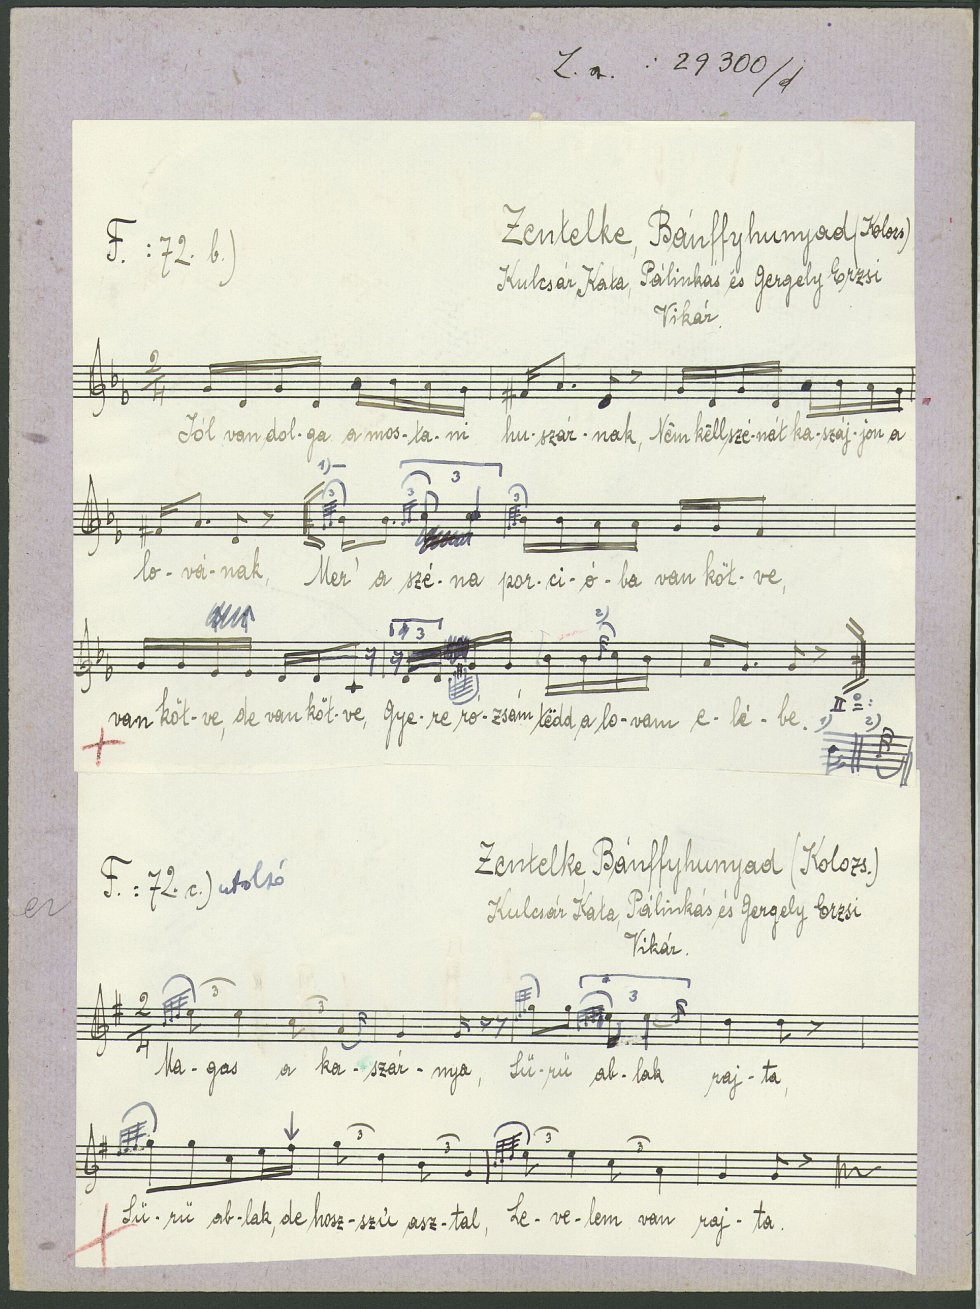 L. a. : 29300/d
F. : 72. b.)
Zentelke, Bánffyhunyad (Kolozs)
Kulcsár Kata, Pálinkás és Gergely Erzsi
Vikár.
2
4
Jól van dol-ga a mos-ta-ni hu-szár-nak, Nëm këll szé-nát ka-száj-jon a
1) 3 3 3 3
lo-vá-nak, Mer' a szé-na por-ci-ó-ba van köt-ve,
3 2)
van köt-ve, de van köt-ve, Gye-re ró-zsám tëdd a lo-vam e-lé-be.
II
1) 2)
F. : 72. c.) utolsó
Zentelke Bánffyhunyad (Kolozs.)
Kulcsár Kata, Pálinkás és Gergely Erzsi
Vikár.
2
4
3 3 3
Ma-gas a ka-szár-nya, Sü-rü ab-lak raj-ta,
3 3 3 3
Sü-rü ab-lak, de hosz-szú asz-tal, Le-ve-lem van raj-ta.